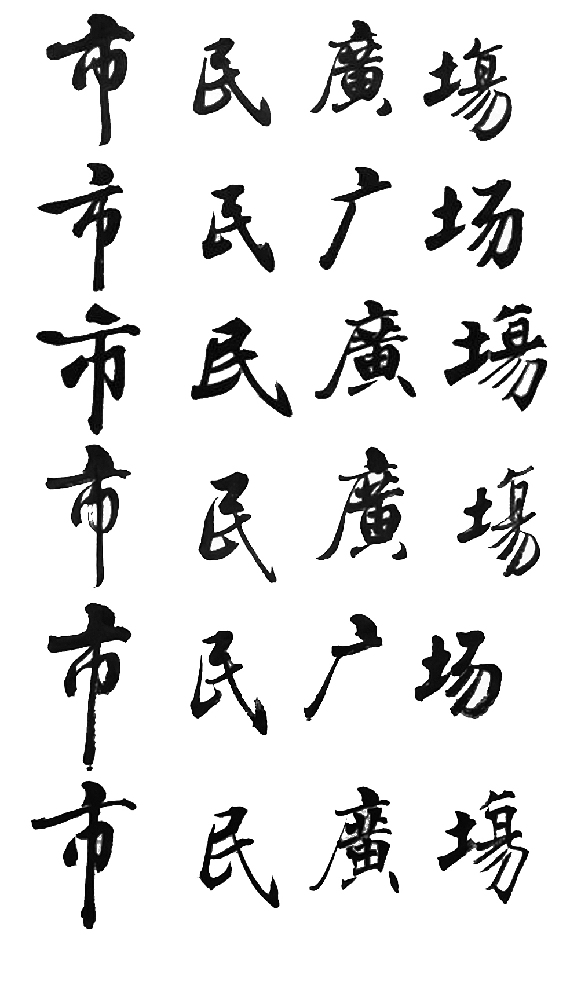 市民廣場
市民广场
市民廣場
市民廣場
市民广场
市民廣場